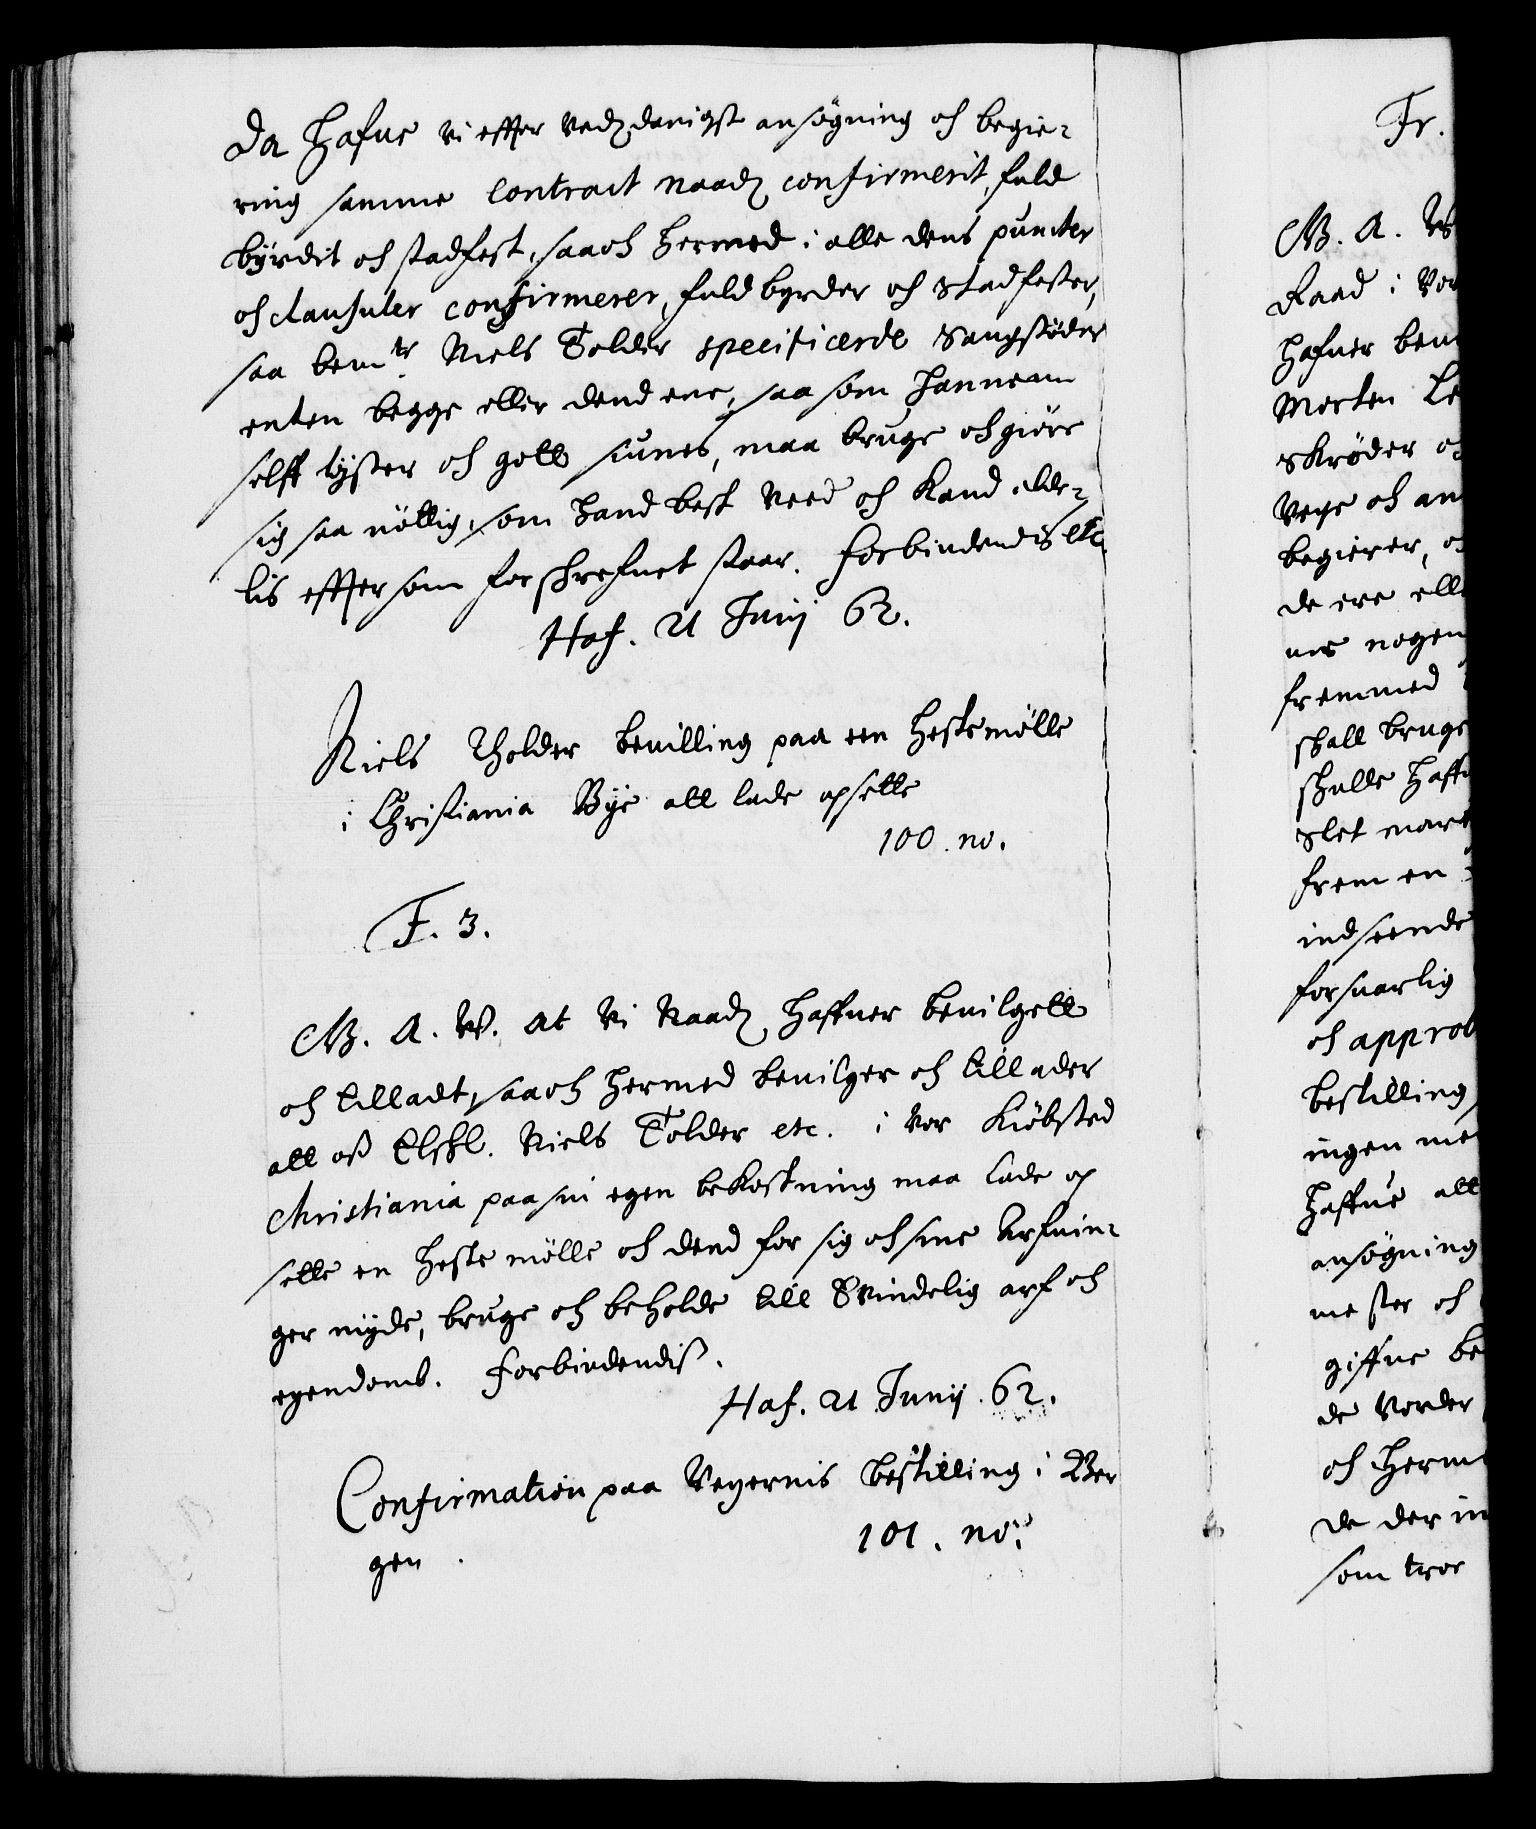 Da Hafue vi effter vnd. danigst ansøgning och begie-
ring samme Contract naad. confirmerit, fuld
byrdit och stadfest, saa och hermed i alle dens puncter
och clausuler confirmerer, fuldbyrder och stadfester,
saa bem.te Niels Tolder specificerde Saugstøder
enten begge eller dend ene, saa som hannem
selff lyster och gott siunes, maa bruge och giøre
sig saa nøttig, som hand best veed och kand, alde-
lis effter som forschrefuet staar. Forbindendis etc.
Haf. 21 Junij 62.
Niels Tholder bevilling paa een hestemølle
i Christiania Bye att lade opsette
100. no.
F. 3.
G. A. W. At vi Naad. haffuer bevilgett
och tilladt, saa och hermed bevilger och tillader
att oss Elskl. Niels Tolder etc. i vor Kiøbsted
Christiania paa sin egen bekostning maa lade op
sette en heste mølle och dend for sig och sine Arfuin-
ger nyde, bruge och beholde till Evindelig arf och
egendomb. Forbindendiss.
Haf. 21 Junij. 62.
Confirmation paa Veyernis bestilling i Ber
gen.
101. no.
Fr.
G. A. W
Raad i Vor
hafuer bem
Morten Le
Skrøder o
Veye och an
begierer, o
de ere elle
nogen
fremmed
skall bruge
skulle haff
slet mar
frem en
indseende
forsuarlig
och approb
bestilling
ingen me
haffue att
ansøgning
mester och
giffue be
de vorder
och herme
de der in
som tror